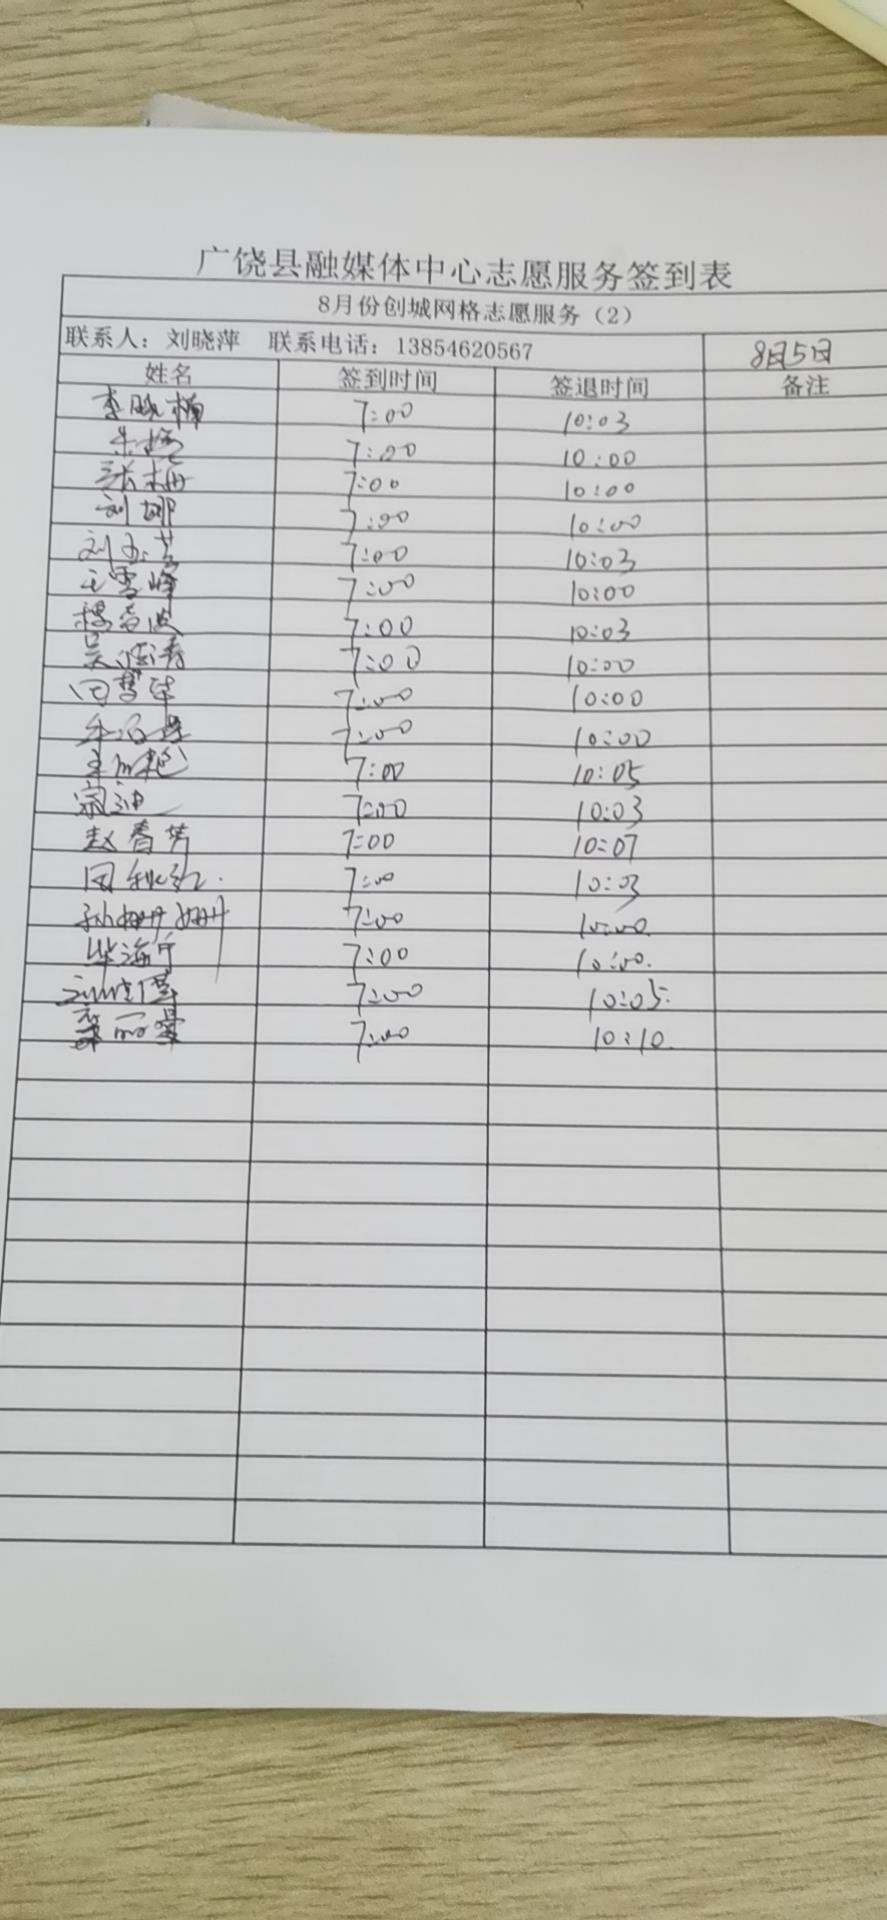 广饶县融媒体中心志愿服务签到表
8月份创城网格志愿服务（2）
联系人：刘晓萍 联系电话：13854620567 8月5日
姓名 签到时间 签退时间 备注
李晓楠 7:00 10:03
7:00 10:00
张梅 7:00 10:00
刘娜 7:00 10:00
刘 7:00 10:03
王雪峰 7:00 10:00
7:00 10:03
吴 7:00 10:00
7:00 10:00
7:00 10:00
7:00 10:05
宗迪 7:00 10:03
赵春芳 7:00 10:07
田秋红 7:00 10:03
孙姗姗 7:00 10:00
毕海 7:00 10:00
7:00 10:05
7:00 10:10